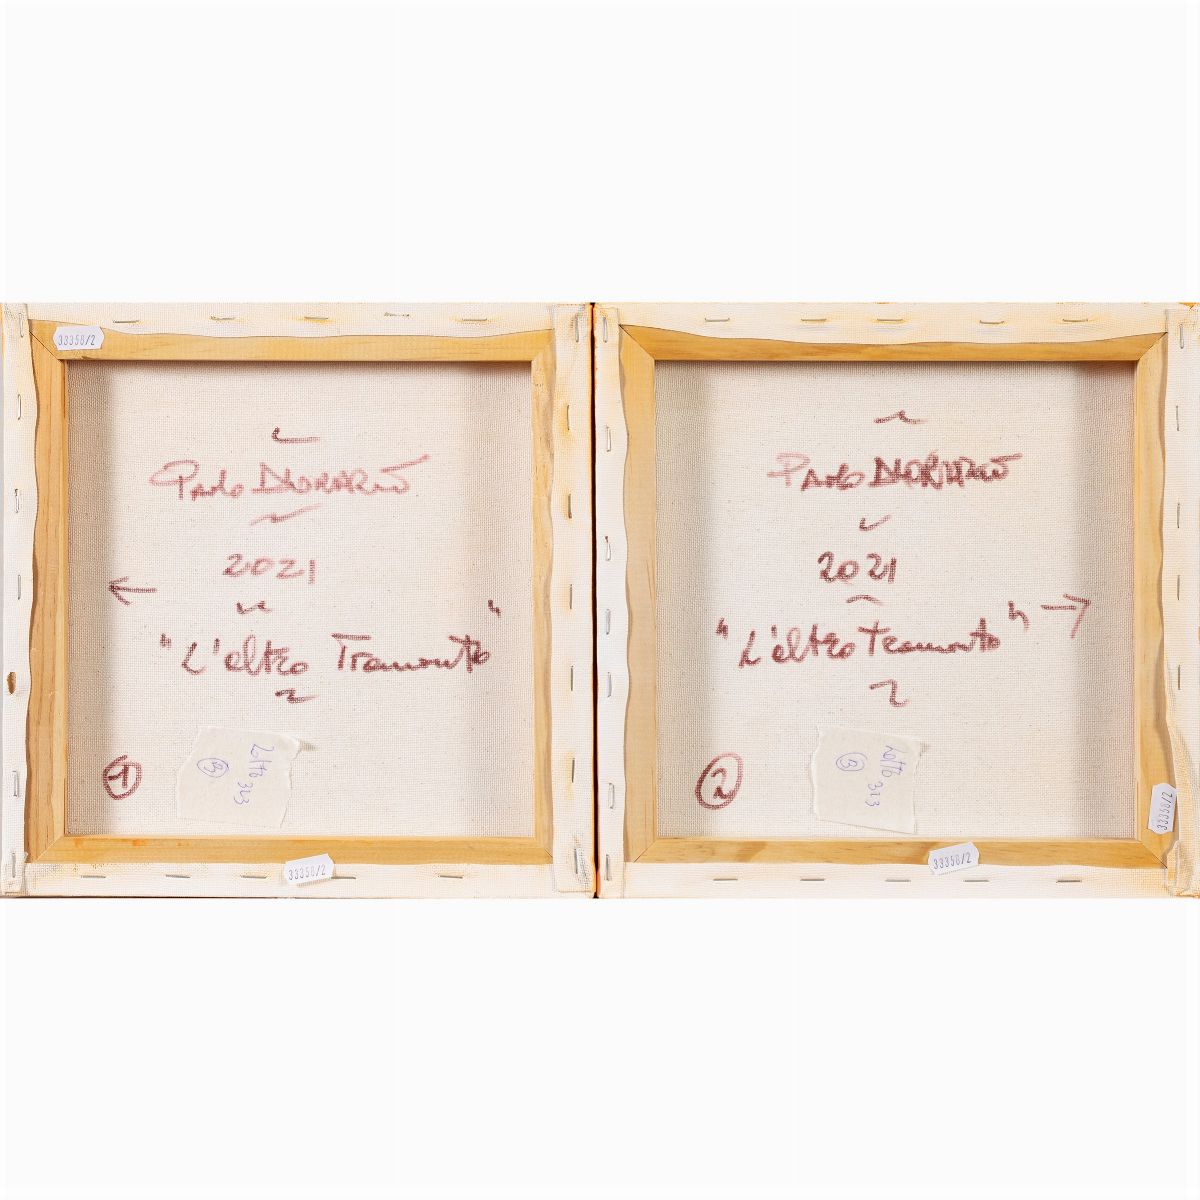 33358/2
Paolo
2021
←
"L'altro Tramonto"
1
Lotto 323
3
33358/2
Paolo
2021
"L'altro Tramonto" →
2
Lotto 323
3
33358/2
33358/2